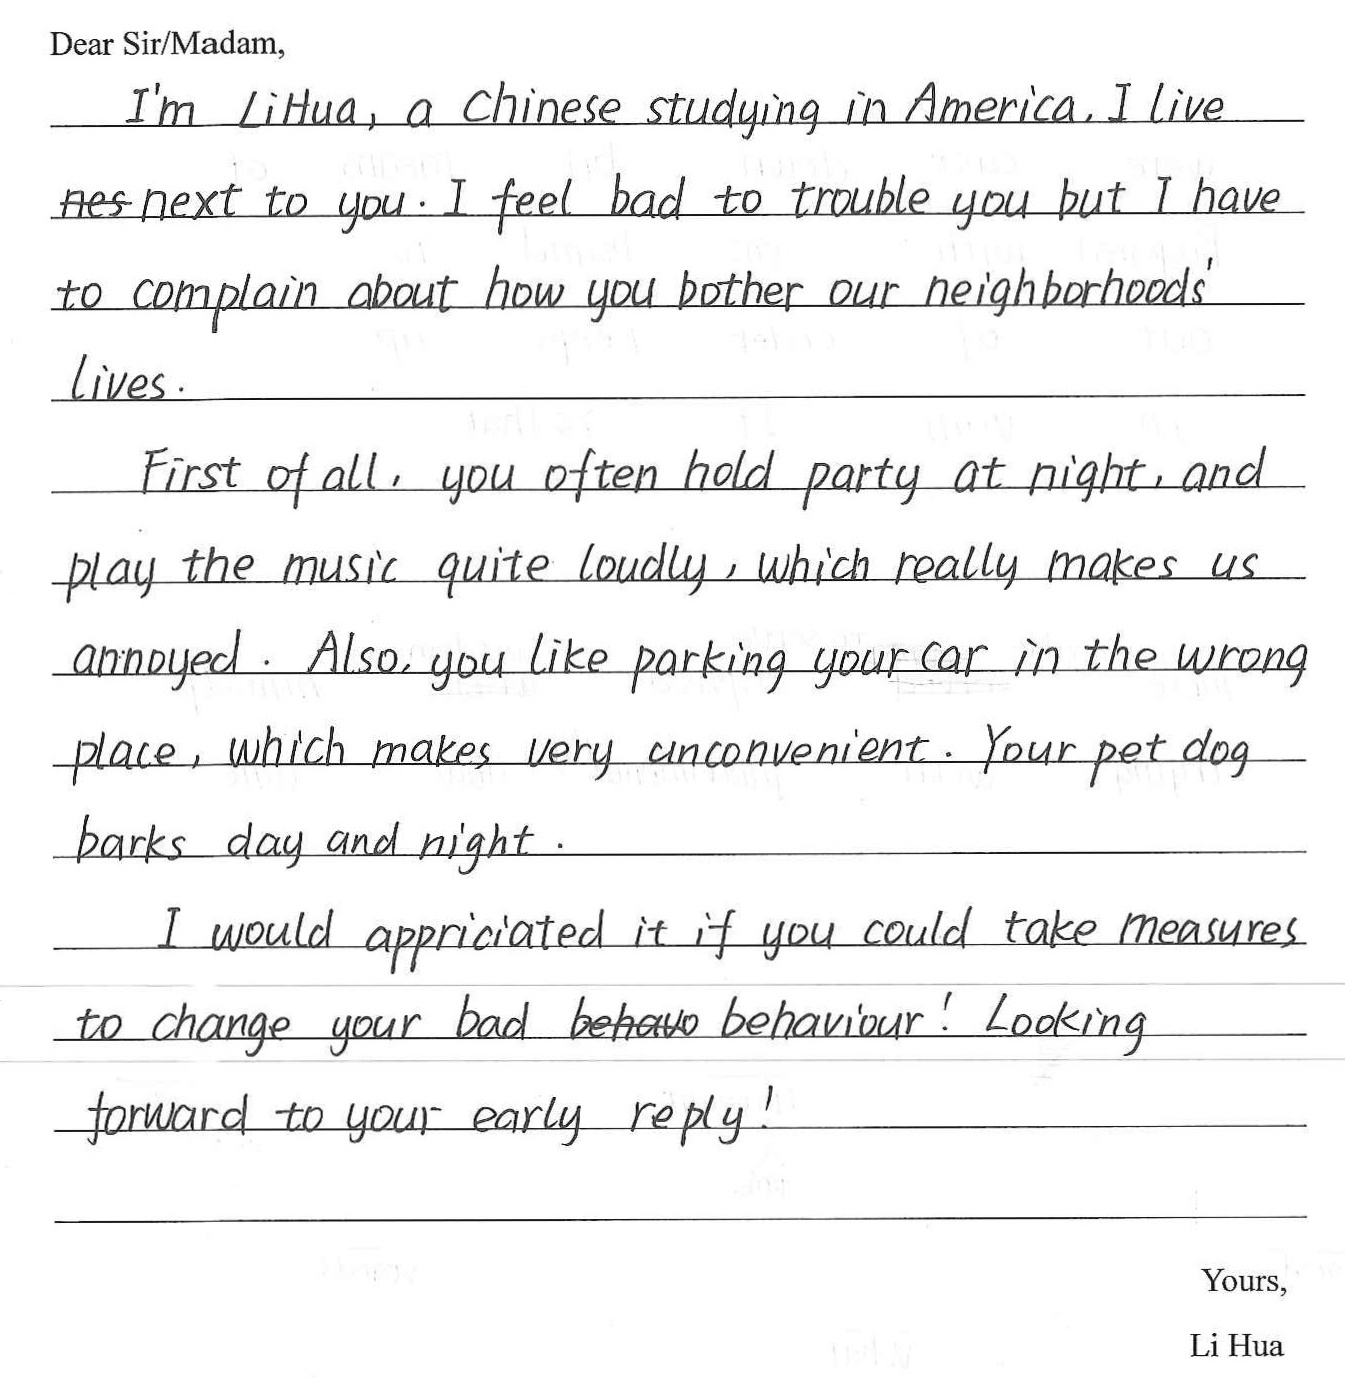 Dear Sir/Madam,
I'm LiHua, a Chinese studying in America. I live
nes next to you. I feel bad to trouble you but I have
to complain about how you bother our neighborhoods'
lives.
First of all, you often hold party at night, and
play the music quite loudly, which really makes us
annoyed. Also, you like parking your car in the wrong
place, which makes very unconvenient. Your pet dog
barks day and night.
I would appriciated it if you could take measures
to change your bad behavo behaviour! Looking
forward to your early reply!
Yours,
Li Hua